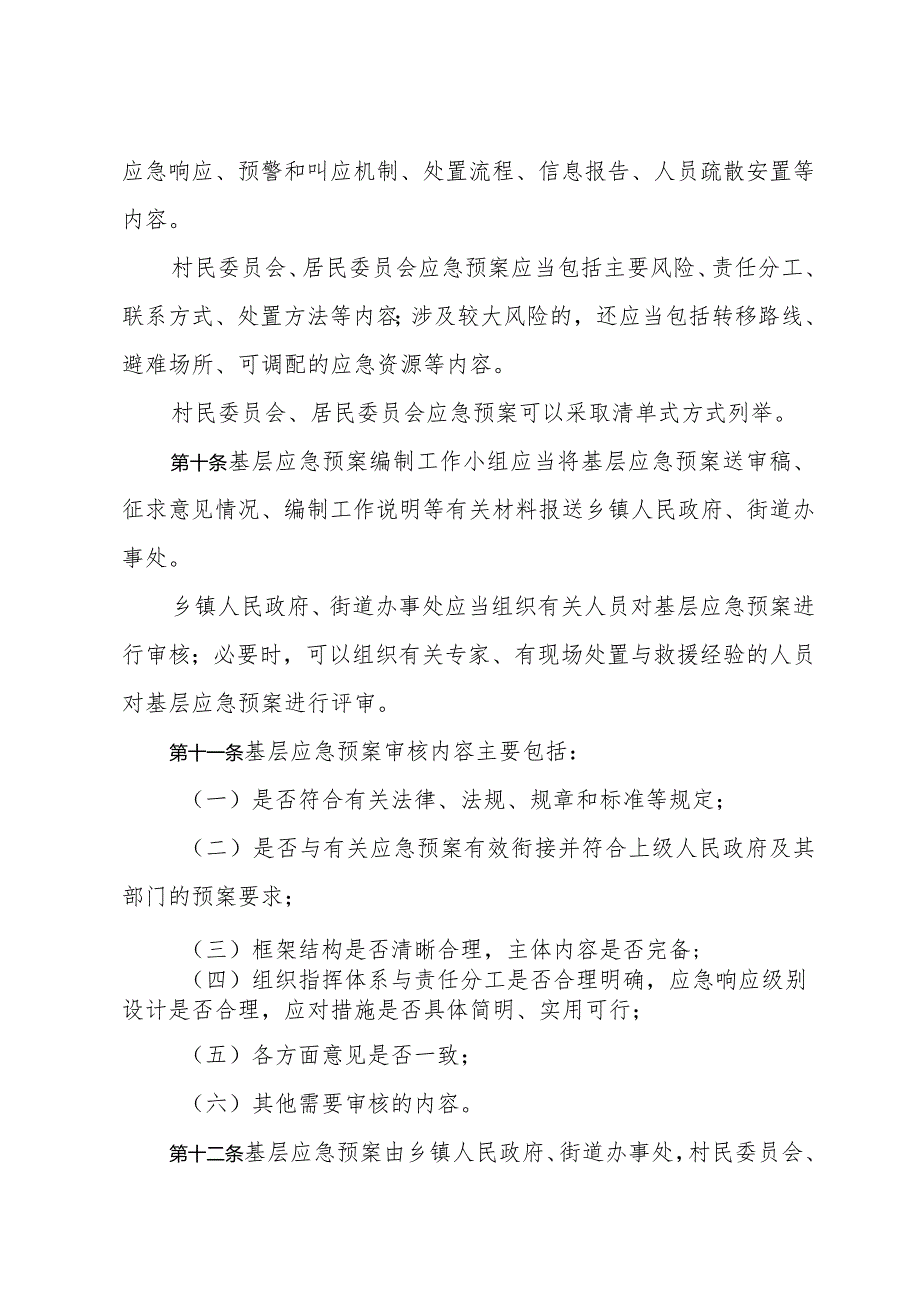 应急响应、预警和叫应机制、处置流程、信息报告、人员疏散安置等
内容。
村民委员会、居民委员会应急预案应当包括主要风险、责任分工、
联系方式、处置方法等内容;涉及较大风险的，还应当包括转移路线、
避难场所、可调配的应急资源等内容。
村民委员会、居民委员会应急预案可以采取清单式方式列举。
第十条基层应急预案编制工作小组应当将基层应急预案送审稿、
征求意见情况、编制工作说明等有关材料报送乡镇人民政府、街道办
事处。
乡镇人民政府、街道办事处应当组织有关人员对基层应急预案进
行审核；必要时，可以组织有关专家、有现场处置与救援经验的人员
对基层应急预案进行评审。
第十一条基层应急预案审核内容主要包括：
（一）是否符合有关法律、法规、规章和标准等规定；
（二）是否与有关应急预案有效衔接并符合上级人民政府及其
部门的预案要求；
（三）框架结构是否清晰合理，主体内容是否完备;
（四）组织指挥体系与责任分工是否合理明确，应急响应级别
设计是否合理，应对措施是否具体简明、实用可行；
（五）各方面意见是否一致；
（六）其他需要审核的内容。
第十二条基层应急预案由乡镇人民政府、街道办事处，村民委员会、